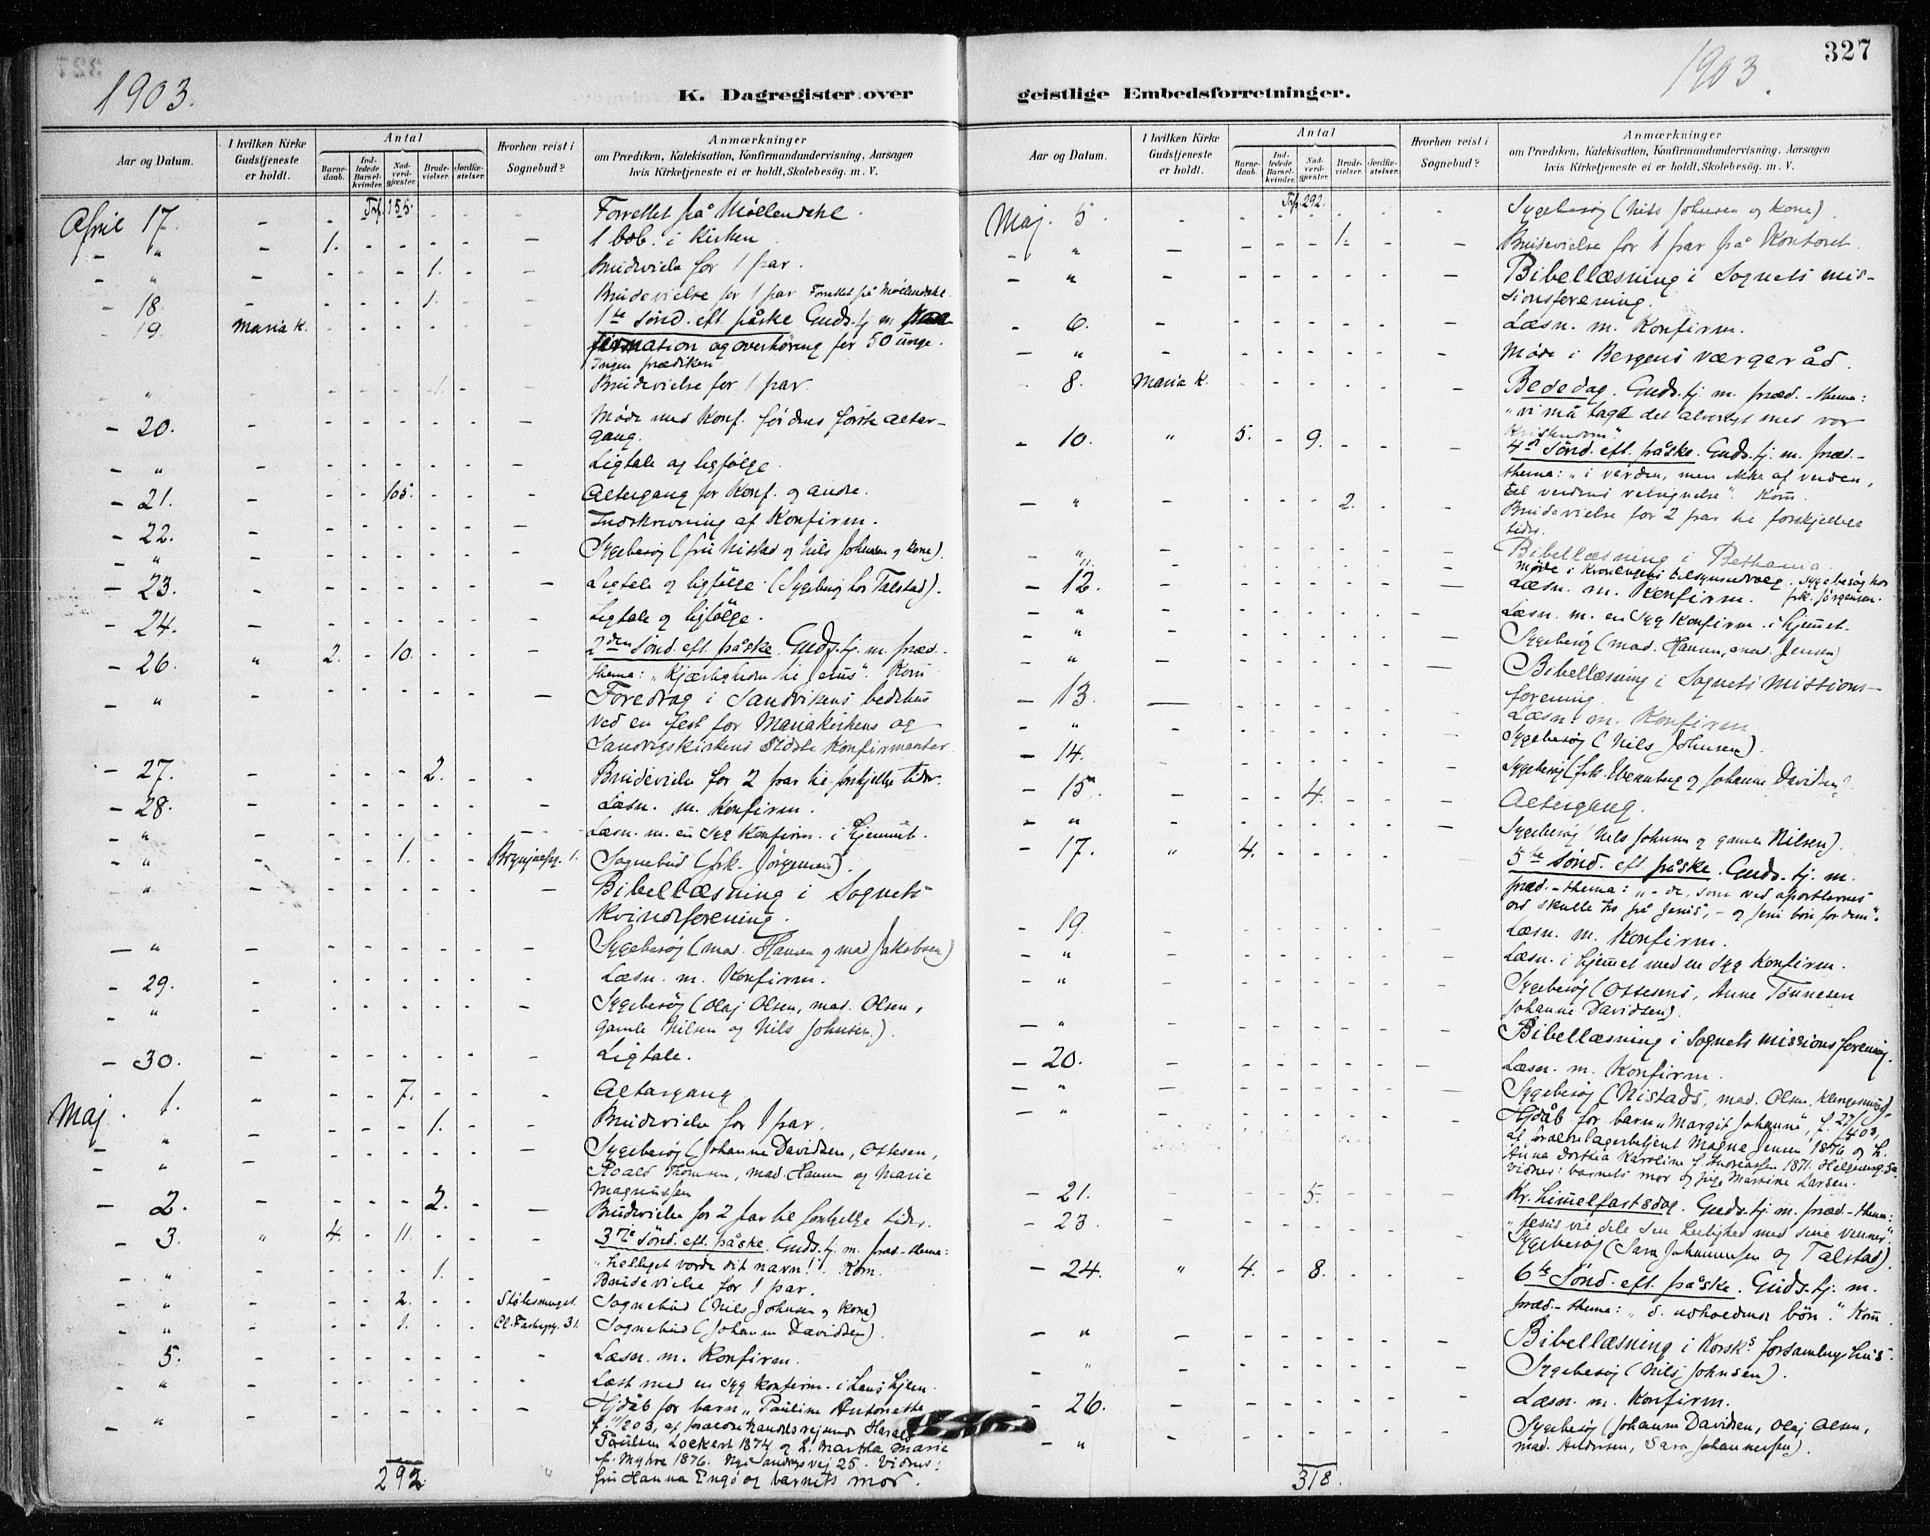 1903.
K. Dagregister over
Aar og Datum.
I hvilken Kirke Gudstjeneste er holdt.
Antal
Barnedaab.
Indledede Barselkvinder.
Nadverdgjester.
Brudevielser.
Jordfæstelser.
Hvorhen reist i Sognebud?
Anmærkninger
om Prædiken, Katekisation, Konfirmandundervisning, Aarsagen
hvis Kirketjeneste ei er holdt, Skolebesøg. m. V.
Trf. 155.
April 17. - - - - - - Forrettet på Møllendahl.
- " - 1. - - - - - 1 bdb. i Kirken
- " - - - - 1. - - Brudevielse for 1 par.
- 18. - - - - 1. - - Brudevielse for 1 par. Forrettet på Møllendahl.
- 19. Maria K. - - - - - 1ste sønd. eft. påske Guds.tj. m
firmation og overhøring for 50 unge.
Ingen prædiken
- " - - - - 1. - - Brudevielse for 1 par.
- 20. - - - - - - - Møde med Konf. før deres første alter-
gang.
- " - - - - - - - Ligtale og ligfølge.
- 21. - - - 105. - - - Altergang for Konf. og andre.
- 22. - - - - - - - Indskrivning af Konfirm.
- " - - - - - - - Sygebesøg (fru Nistad og Nils Johnsen og kone).
- 23. - - - - - - - Ligtale og ligfølge. (Sygebesøg hos Talstad).
- 24. - - - - - - - Ligtale og ligfølge.
- 26. " 2. - 10. - - - 2den sønd. eft. påske. Guds.tj. m. præd.-
thema: "Kjærligheden til Jesus". Kom
- " - - - - - - - Foredrag i Sandvikens bedehus
ved en fest for Mariakirkens og
Sandvigskirkens sidste Konfirmanter.
- 27. - - - - 2. - - Brudevielse for 2 par til forskjellige tider.
- 28. - - - - - - - Læsn. m. Konfirm.
- " - - - - - - - Læsn. m. en syg Konfirm. i hjemmet.
- " - - - 1. - - 1. Sognebud (frk. Jørgensen).
- " - - - - - - - Bibellæsning i Sognets
Kvindeforening.
- " - - - - - - - Sygebesøg (mad. Hansen og mad Jakobsen)
- 29. - - - - - - - Læsn. m. Konfirm.
- " - - - - - - - Sygebesøg (Olaj Olsen, mad. Olsen,
gamle Nilsen og Nils Johnsen.).
- 30. - - - - - - - Ligtale.
Maj. 1. - - - 7. - - - Altergang
- " - - - - 1. - - Brudevielse for 1 par.
- " - - - - - - - Sygebesøg (Johanne Davidsen, Ottesen,
Roald Thomsen, mad Hansen og Marie
Magnussen
- 2. - - - - 2. - - Brudevielse for 2 par til forskjellige tider.
- 3. " 4. - 11. - - - 3die sønd. eft. påske. Guds.tj. m. præd-thema:
"Helliget vorde dit navn!". Kom.
- " - - - - 1. - - Brudevielse for 1 par.
- " - - - 2. - - Stølesmuget. Sognebud (Nils Johnsen og Kone)
- " - - - 1. - - 31. Sognebud (Johanne Davidsen).
- 5. - - - - - - - Læsn. m. Konfirm.
- " - - - - - - - Læst med en syg Konfirm. i hans hjem
- " - - - - - - - Hjdåb for barn "Pauline Antonette
f. 11/2 03, af forældre handelsrejsende Harald
Paulsen Lockert 1874 og h. Martha Marie
f. Myhre 1876. Nye Sandvigsvej 25. Vidner:
fru Hanna Engø og barnets mor.
292.
1903.
327
geistlige Embedsforretninger.
Aar og Datum.
I hvilken Kirke Gudstjeneste er holdt.
Antal
Barnedaab.
Indledede Barselkvinder.
Nadverdgjester.
Brudevielser.
Jordfæstelser.
Hvorhen reist i Sognebud?
Anmærkninger
om Prædiken, Katekisation, Konfirmandundervisning, Aarsagen
hvis Kirketjeneste ei er holdt, Skolebesøg. m. V.
Trf. 292.
Maj. 5 - - - - - - - Sygebesøg (Nils Johnsen og Kone).
- " - - - - 1. - - Brudevielse for 1 par på Kontoret.
- " - - - - - - - Bibellæsning i Sognets mis-
sionsforening.
- 6. - - - - - - - Læsn. m. Konfirm.
- " - - - - - - - Møde i Bergens værgeråd.
8. Maria K. - - - - - - Bededag. Guds.tj. m. præd. - thema:
"vi må tage det alvorligt med vor
Kristendom".
- 10. " 5. - 9. - - - 4de sønd. eft. påske. Guds.tj. m. præd.-
thema: "i verden, men ikke af verden,
til verdens velsignelse". Kom.
- " - - - - 2. - - Brudevielse for 2 par til forskjellige
tider.
- " - - - - - - - Bibellæsning i Bethania.
Møde i Kronengens tilsynsudvalg. Sygebesøg hos
frk. Jørgensen.
- 12. - - - - - - - Læsn. m. Konfirm.
- " - - - - - - - Læsn. m. en syg Konfirm. i hjemmet.
- " - - - - - - - Sygebesøg (mad. Hansen, mad. Jensen)
- " - - - - - - - Bibellæsning i Sognets missions-
forening.
- 13. - - - - - - - Læsn. m. Konfirm
- " - - - - - - - Sygebesøg (Nils Johnsen).
- 14. - - - - - - - Sygebesøg (frk. Wennberg og Johanne Davidsen)
- 15. - - - 4. - - - Altergang.
- " - - - - - - - Sygebesøg (Nils Johnsen og gamle Nilsen).
- 17. " 4. - - - - - 5te sønd. eft. påske. Guds.tj. m.
præd. - thema: "- de, som ved apostlernes
ord skulle tro på Jesus, - og Jesu bøn for dem".
- 19. - - - - - - - Læsn. m. Konfirm.
- " - - - - - - - Læsn. i hjemmet med en syg Konfirm.
- " - - - - - - - Sygebesøg (Ottesens, Anne Tønnesen
Johanne Davidsen).
- " - - - - - - - Bibellæsning i Sognets missionsforening.
- 20. - - - - - - - Læsn. m. Konfirm.
- " - - - - - - - Sygebesøg (Nistads, mad. Olsen,
- " - - - - - - - Hjdåb for barn "Margit Johanne", f. 27/4 03,
af forældre lagerbetjent Magnus Jensen 1876 og h.
Anna Dorthea Karoline f. Andreassen 1871.
Vidner: barnets mor og pige Martine Larsen.
- 21. - - - 5. - - - Kr. himmelfartsdag. Guds.tj. m. præd - thema:
"Jesus vil dele sin herlighed med sine venner"
- 23. - - - - - - - Sygebesøg (Sara Johannessen og Talstad).
- 24. " 4. - 8. - - - 6te sønd. eft. påske. Guds.tj. m.
præd.- thema: "d. udholdende bøn". Kom
- " - - - - - - - Bibellæsning i Korsk.s forsamlingshus.
- " - - - - - - - Sygebesøg (Nils Johnsen).
- 26. - - - - - - - Læsn. m. Konfirm.
- " - - - - - - - Sygebesøg (Johanne Davidsen, Olaj Olsen,
mad. Andersen, Sara Johannessen).
318.